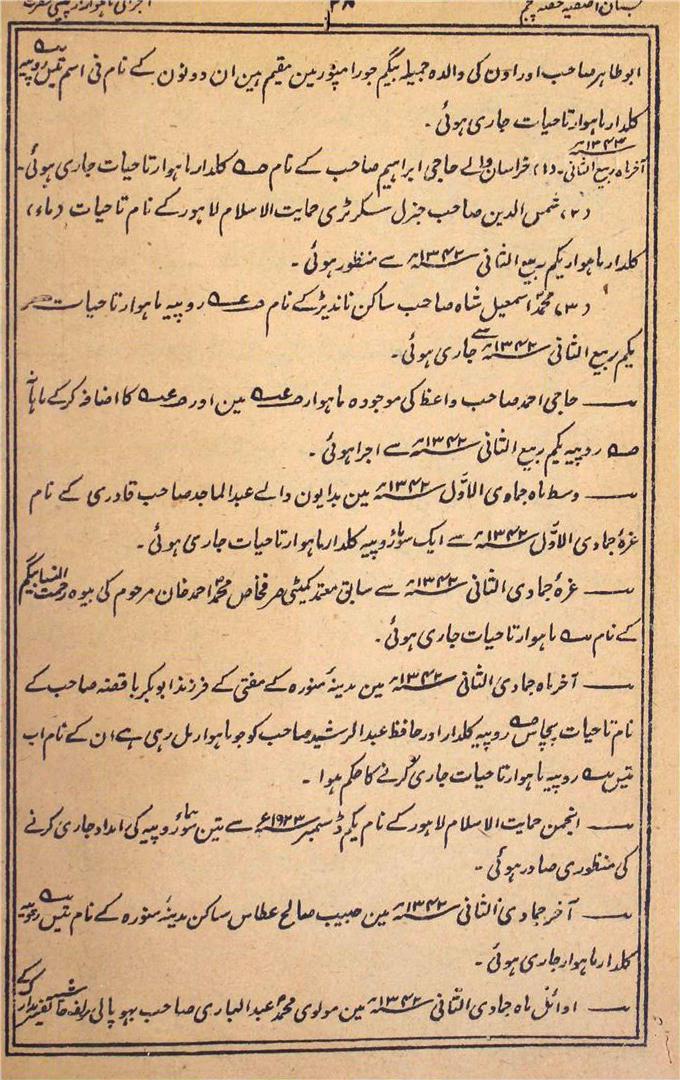 بستان آصفیہ حصہ پنجم
ابوطاہر صاحب اور اون کی والدہ جمیلہ بیگم جو رامپور مین مقیم ہین ان دونون کے نام فی اسم تیس روپیہ
کلدار ماہوار تاحیات جاری ہوئی۔
آخر ماہ ربیع الثانی ۱۳۴۲؁ھ۔ (۱) خراسان والے حاجی ابراہیم صاحب کے نام کلدار ماہوار تاحیات جاری ہوئی۔
(۲) شمس الدین صاحب جنرل سکرٹری حمایت الاسلام لاہور کے نام تاحیات
کلدار ماہوار یکم ربیع الثانی ۱۳۴۲؁ھ سے منظور ہوئی۔
(۳) محمد اسمعیل شاہ صاحب ساکن ناندیڑ کے نام روپیہ ماہوار تاحیات
یکم ربیع الثانی ۱۳۴۲؁ھ سے جاری ہوئی۔
ــــ حاجی احمد صاحب واعظ کی موجودہ ماہوار مین اور کا اضافہ کرکے ماہانہ
روپیہ یکم ربیع الثانی ۱۳۴۲؁ھ سے اجرا ہوئی۔
ــــ وسط ماہ جمادی الاوّل ۱۳۴۲؁ھ مین بدایون والے عبدالماجد صاحب قادری کے نام
غرۂ جمادی الاوّل ۱۳۴۲؁ھ سے ایک سو روپیہ کلدار ماہوار تاحیات جاری ہوئی۔
ــــ غرۂ جمادی الثانی ۱۳۴۲؁ھ سے سابق معتمد کمیٹی صرفخاص محمد احمد خان مرحوم کی بیوہ رحمت النسا بیگم
کے نام ماہوار تاحیات جاری ہوئی۔
ــــ آخر ماہ جمادی الثانی ۱۳۴۲؁ھ مین مدینۂ منورہ کے مفتی کے فرزند ابوبکر باقصنہ صاحب کے
نام تاحیات پچاس روپیہ کلدار اور حافظ عبدالرشید صاحب کو جو ماہوار مل رہی ہے ان کے نام اب
تیس روپیہ ماہوار تاحیات جاری کرنے کا حکم ہوا۔
ــــ انجمن حمایت الاسلام لاہور کے نام یکم ڈسمبر ۱۹۲۳؁ع سے تین سو روپیہ کی امداد جاری کرنے
کی منظوری صادر ہوئی۔
ــــ آخر جمادی الثانی ۱۳۴۲؁ھ مین حبیب صالح عطاس ساکن مدینۂ منورہ کے نام تیس روپیہ
کلدار ماہوار جاری ہوئی۔
ــــ اوائل ماہ جمادی الثانی ۱۳۴۲؁ھ مین مولوی محمد عبدالباری صاحب بہوپالی